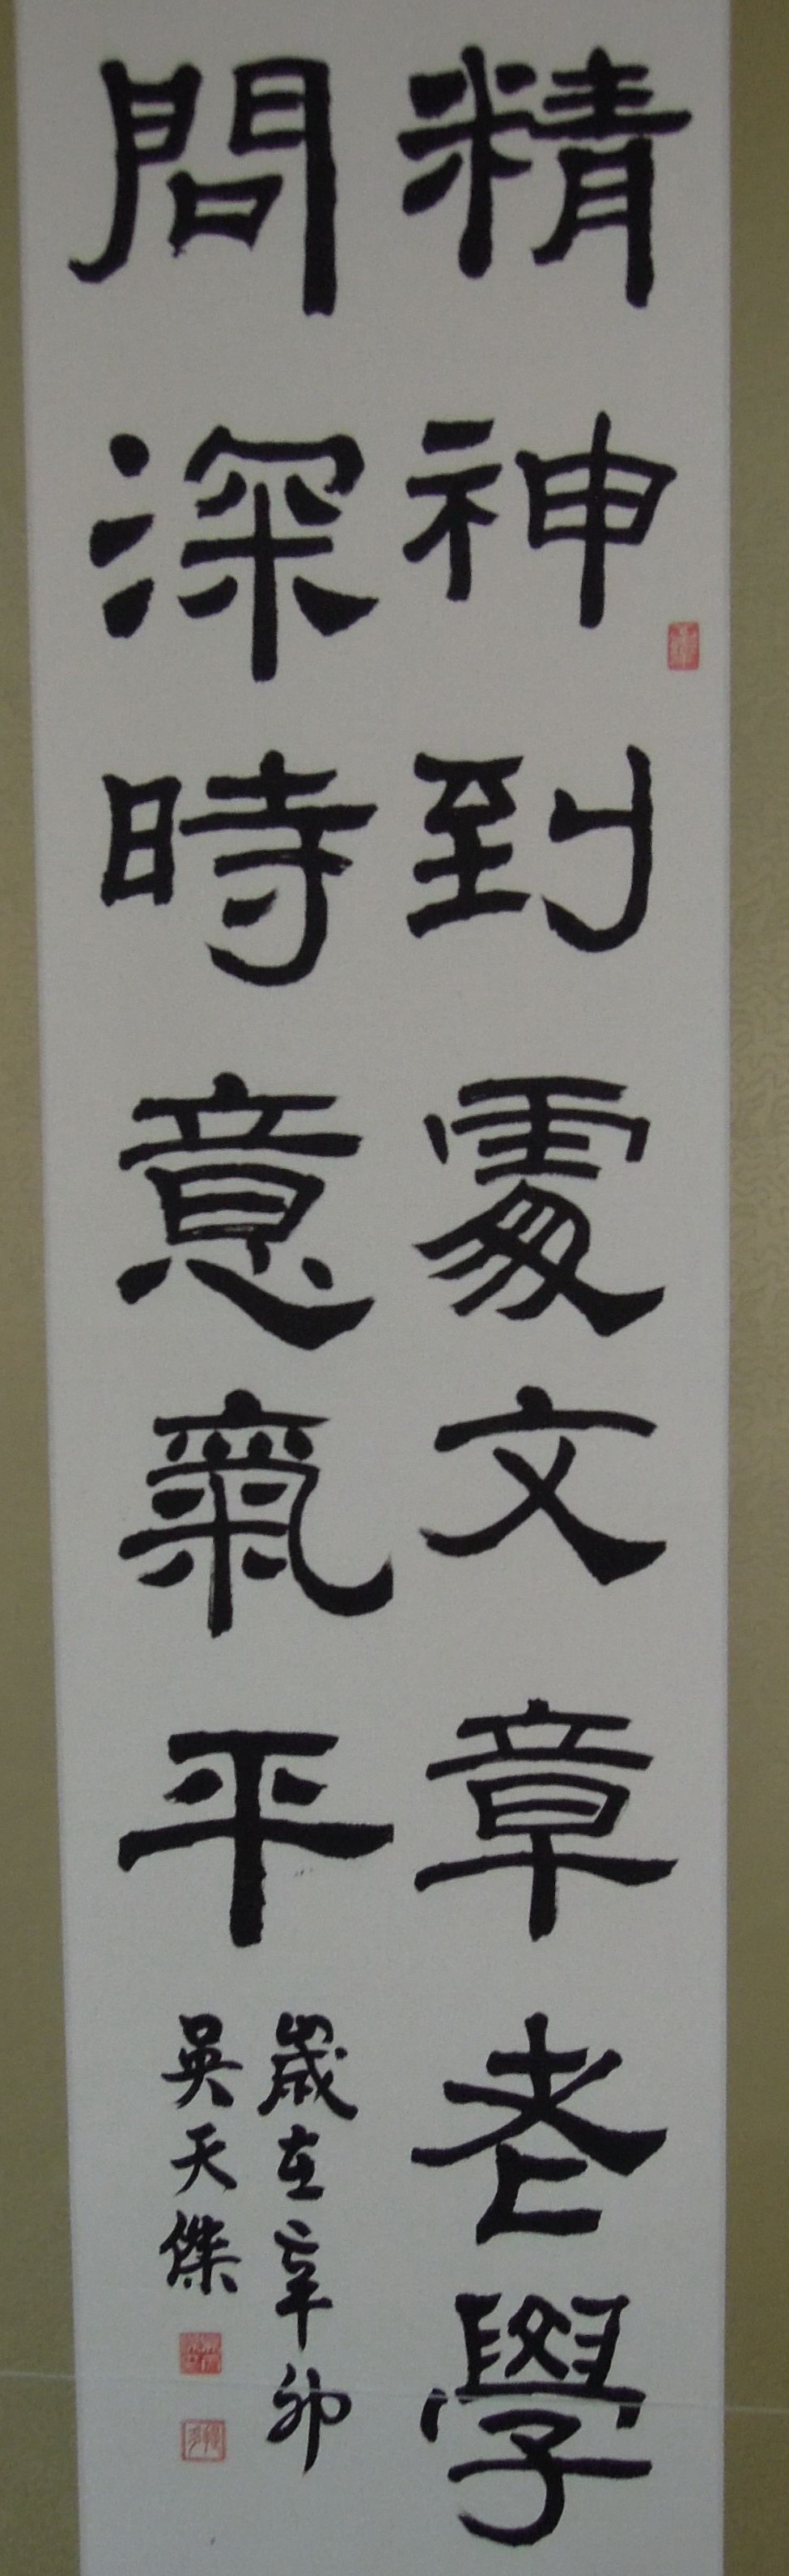 精神到處文章老學
問深時意氣平
歲在辛卯
吳天傑